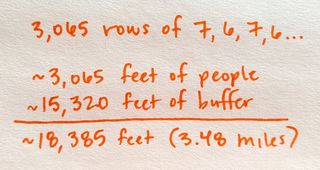 3,065 rows of 7, 6, 7, 6...
~3,065 feet of people
~15,320 feet of buffer
~18,385 feet (3.48 miles)